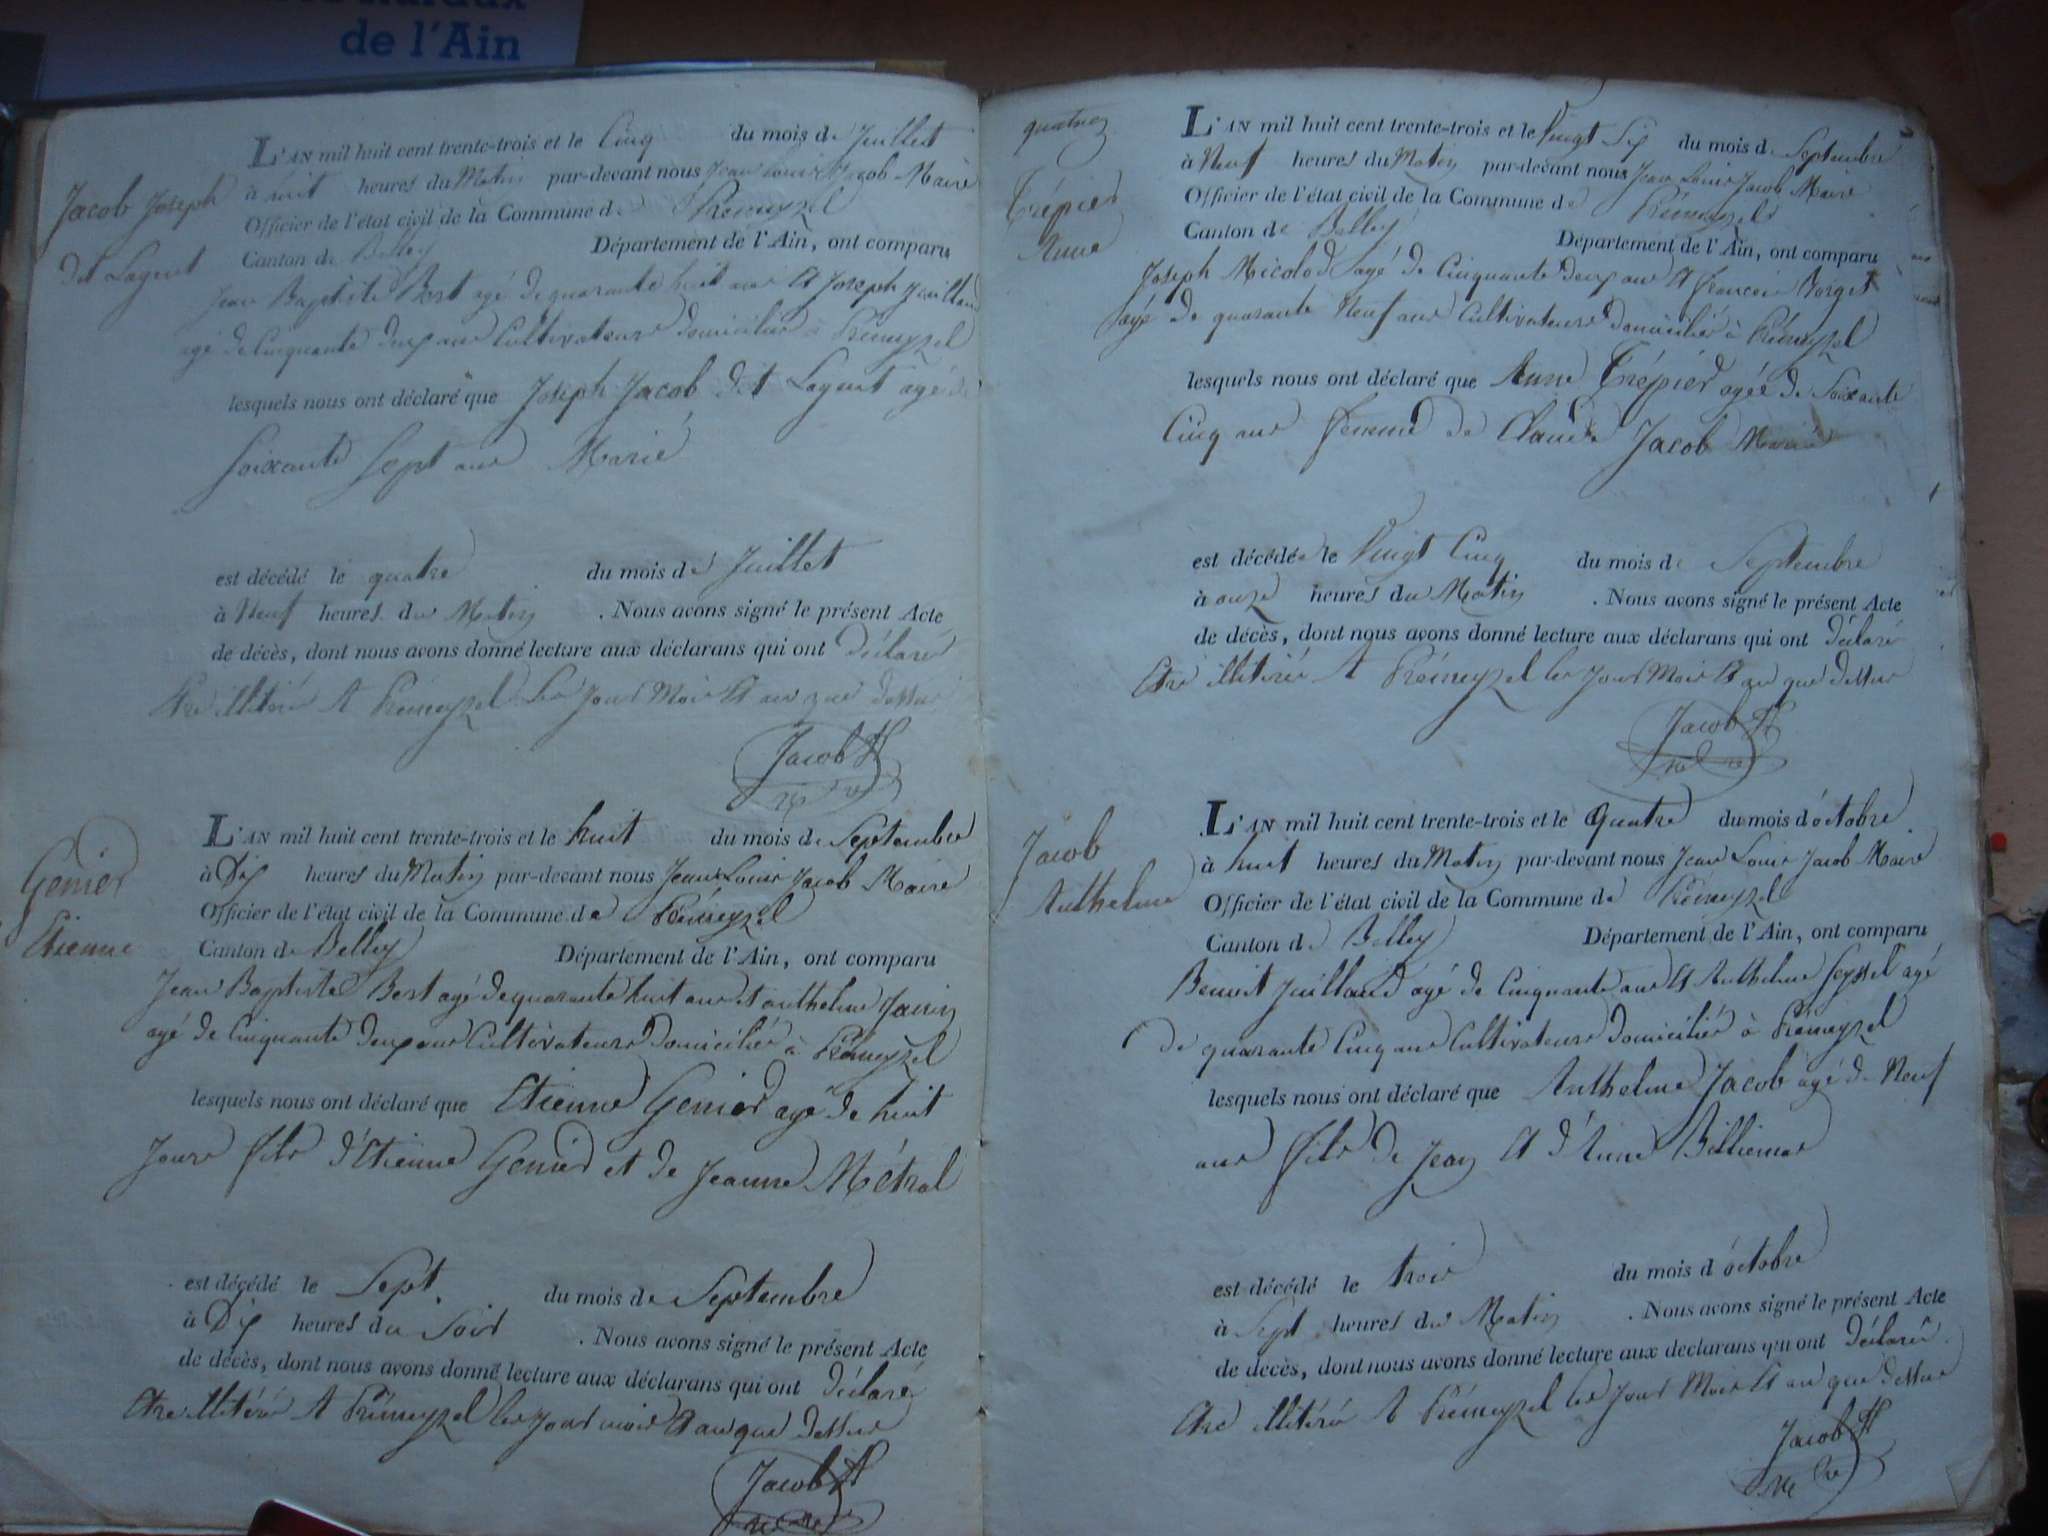 de l'Ain
Jacob Joseph
dit Lagent
L'AN mil huit cent trente-trois et le Cinq du mois de Juillet
à huit heures du Matin par-devant nous Jean Louis Jacob Maire
Officier de l'état civil de la Commune de Prémeyzel
Canton de Belley Département de l'Ain, ont comparu
Jean Baptiste Bert agé de quarante huit ans Et Joseph Juilland
agé de Cinquante deux ans Cultivateurs domiciliés à Prémeyzel
lesquels nous ont déclaré que Joseph Jacob dit Lagent agé de
Soixante Sept ans Marié
est décédé le quatre du mois de Juillet
à Neuf heures du Matin . Nous avons signé le présent Acte
de décès, dont nous avons donné lecture aux déclarans qui ont déclaré
Etre illitéré A Prémeyzel les Jour Mois Et an que dessus
Jacob
Genier
Etienne
L'AN mil huit cent trente-trois et le huit du mois de Septembre
à Dix heures du Matin par-devant nous Jean Louis Jacob Maire
Officier de l'état civil de la Commune de Prémeyzel
Canton de Belley Département de l'Ain, ont comparu
Jean Baptiste Bert agé de quarante huit ans et anthelme Janin
agé de Cinquante deux ans Cultivateurs Domiciliés à Prémeyzel
lesquels nous ont déclaré que Etienne Genier agé de huit
Jours fils d'Etienne Genier et de Jeanne Métral
est décédé le Sept du mois de Septembre
à Dix heures du Soir . Nous avons signé le présent Acte
de décès, dont nous avons donné lecture aux déclarans qui ont déclaré
Etre illitéré A Prémeyzel les Jour mois Et an que dessus
Jacob
quatuez
Trépier
Anne
L'AN mil huit cent trente-trois et le Vingt Six du mois de Septembre
à Neuf heures du Matin par-devant nous Jean Louis Jacob Maire
Officier de l'état civil de la Commune de Prémeyzel
Canton de Belley Département de l'Ain, ont comparu
Joseph Micolod agé de Cinquante deux ans Et françois Borget
agé de quarante Neuf ans Cultivateurs Domiciliés à Prémeyzel
lesquels nous ont déclaré que Anne Trépier agée de Soixante
Cinq ans femme de Claude Jacob Marié
est décédée le Vingt Cinq du mois de Septembre
à onze heures du Matin . Nous avons signé le présent Acte
de décès, dont nous avons donné lecture aux déclarans qui ont déclaré
Etre illitéré A Prémeyzel les Jour Mois Et an que dessus
Jacob
Jacob
Anthelme
L'AN mil huit cent trente-trois et le Quatre du mois d'octobre
à huit heures du Matin par-devant nous Jean Louis Jacob Maire
Officier de l'état civil de la Commune de Prémeyzel
Canton de Belley Département de l'Ain, ont comparu
Benoit Juilland agé de Cinquante ans Et Anthelme Seyssel agé
De quarante Cinq ans Cultivateurs Domiciliés à Prémeyzel
lesquels nous ont déclaré que Anthelme Jacob agé de Neuf
ans fils de Jean Et d'Anne Billiemas
est décédé le trois du mois d'octobre
à Sept heures du Matin . Nous avons signé le présent Acte
de décès, dont nous avons donné lecture aux déclarans qui ont déclaré
Etre illitéré A Prémeyzel les Jour Mois Et an que dessus
Jacob